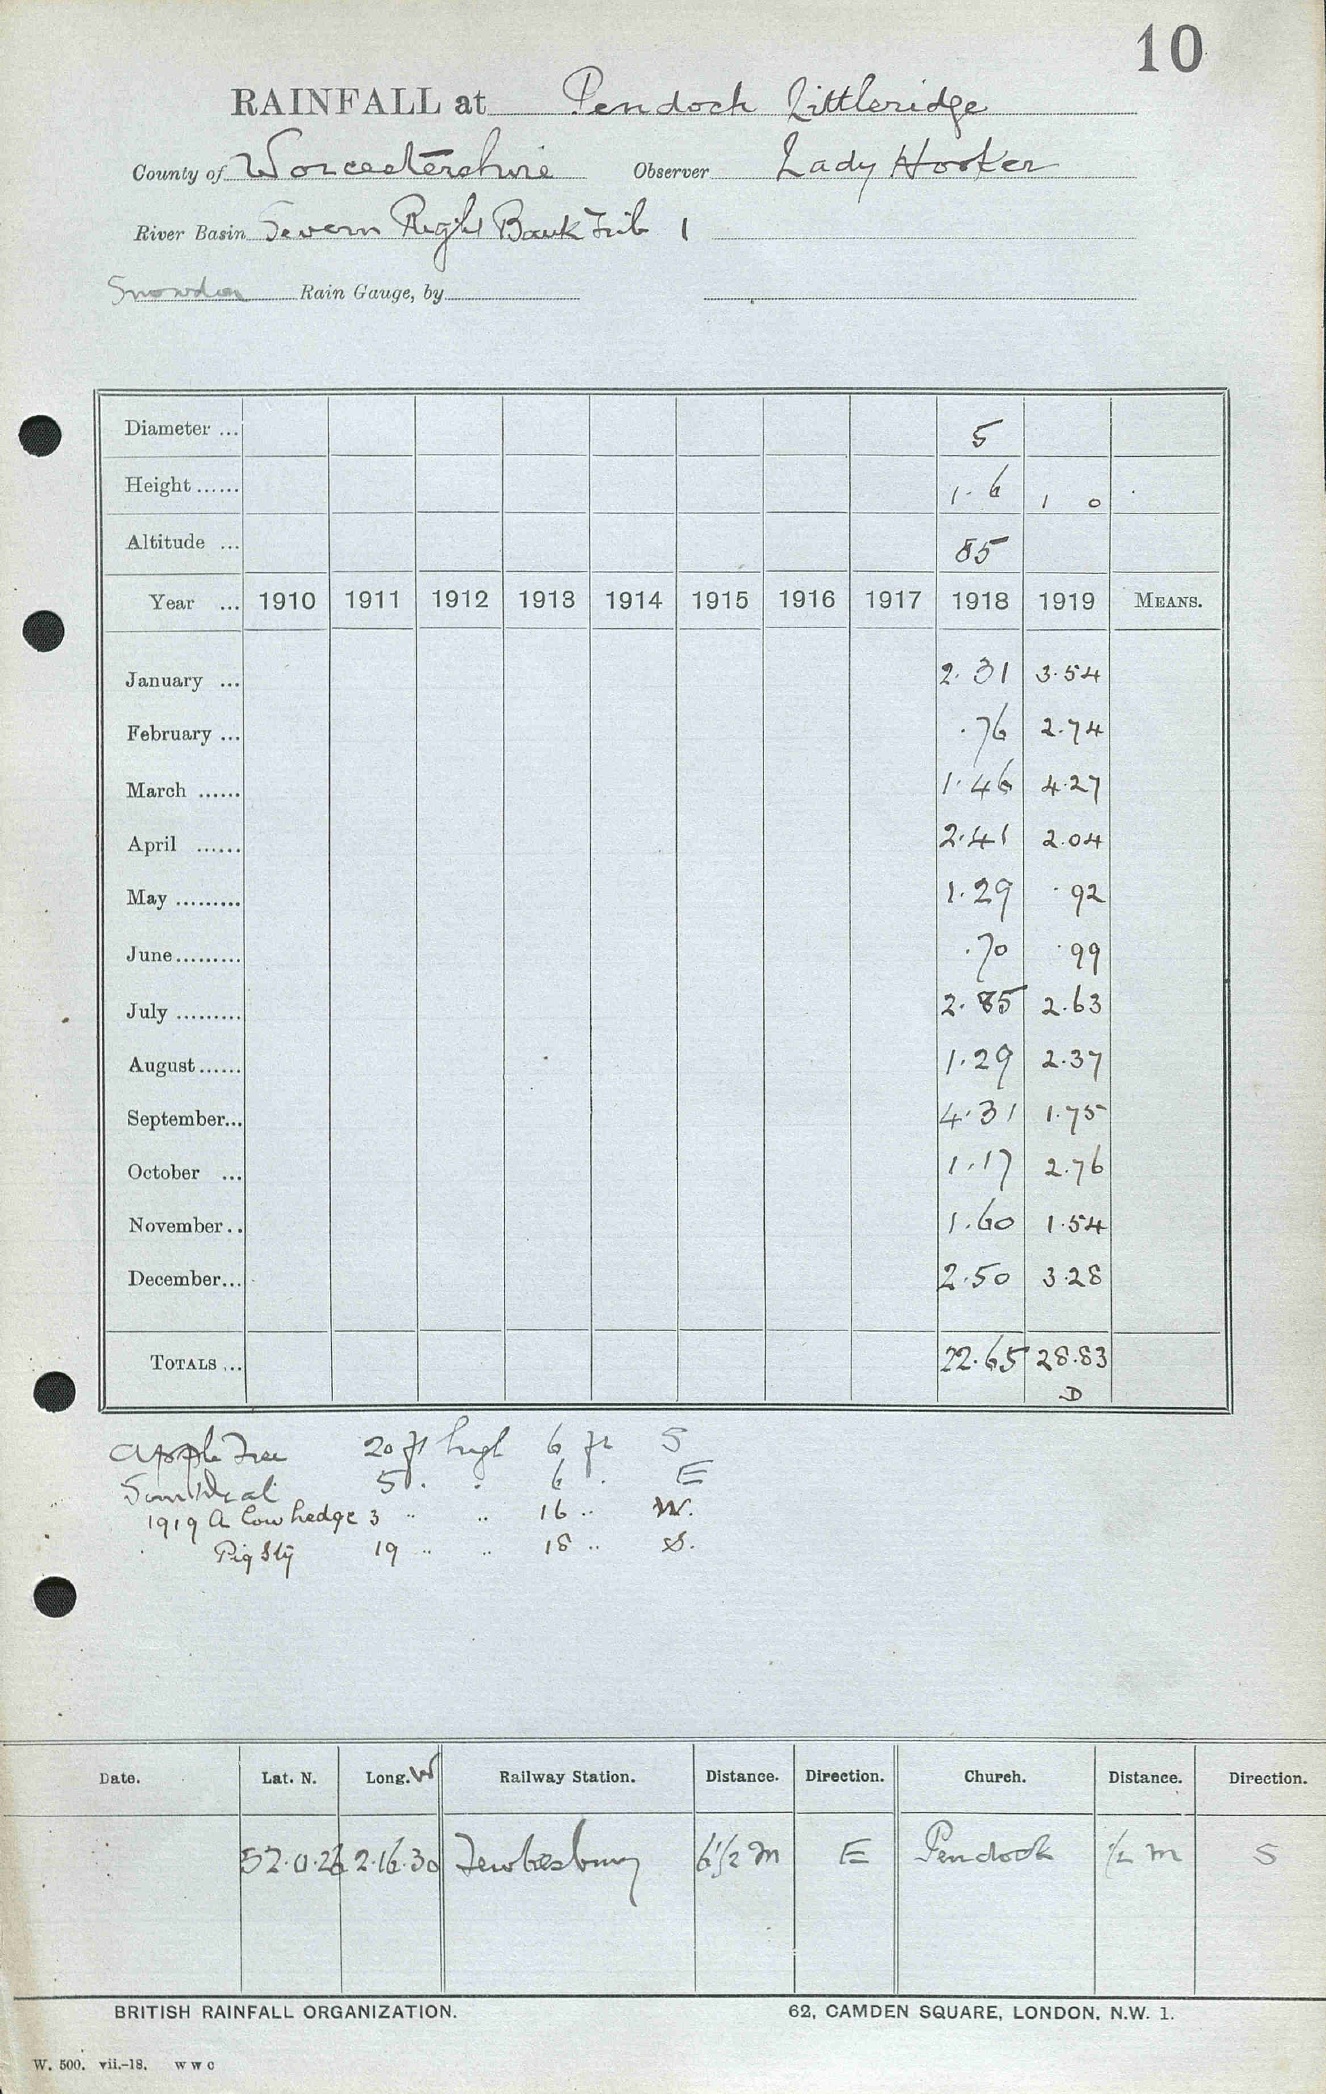 10
RAINFALL at Pendock Littleridge
County of Worcestershire Observer Lady Hooker
River Basin Severn Right Bank Trib 1
Snowdon Rain Gauge, by
Diameter ... 5
Height ...... 1. 6 1 0
Altitude ... 85
Year ... 1910 1911 1912 1913 1914 1915 1916 1917 1918 1919 MEANS.
January ... 2.31 3.54
February ... .76 2.74
March ...... 1.46 4.27
April ...... 2.41 2.04
May ......... 1.29 .92
June ......... .70 .99
July ......... 2.85 2.63
August ...... 1.29 2.37
September... 4.31 1.75
October ... 1.17 2.76
November.. 1.60 1.54
December... 2.50 3.28
TOTALS ... 22.65 28.83
D
Apple Tree 20 ft high 6 ft S
Sundial 5 . . 6 . E
1919 A low hedge 3 .. .. 16 .. W.
Pig Sty 19 .. .. 18 .. S.
Date. Lat. N. Long. W Railway Station. Distance. Direction. Church. Distance. Direction.
52.0.26 2.16.30 Tewkesbury 6½ m E Pendock ½ m S
BRITISH RAINFALL ORGANIZATION. 62, CAMDEN SQUARE, LONDON, N.W. 1.
W. 500. vii.-18. W W C